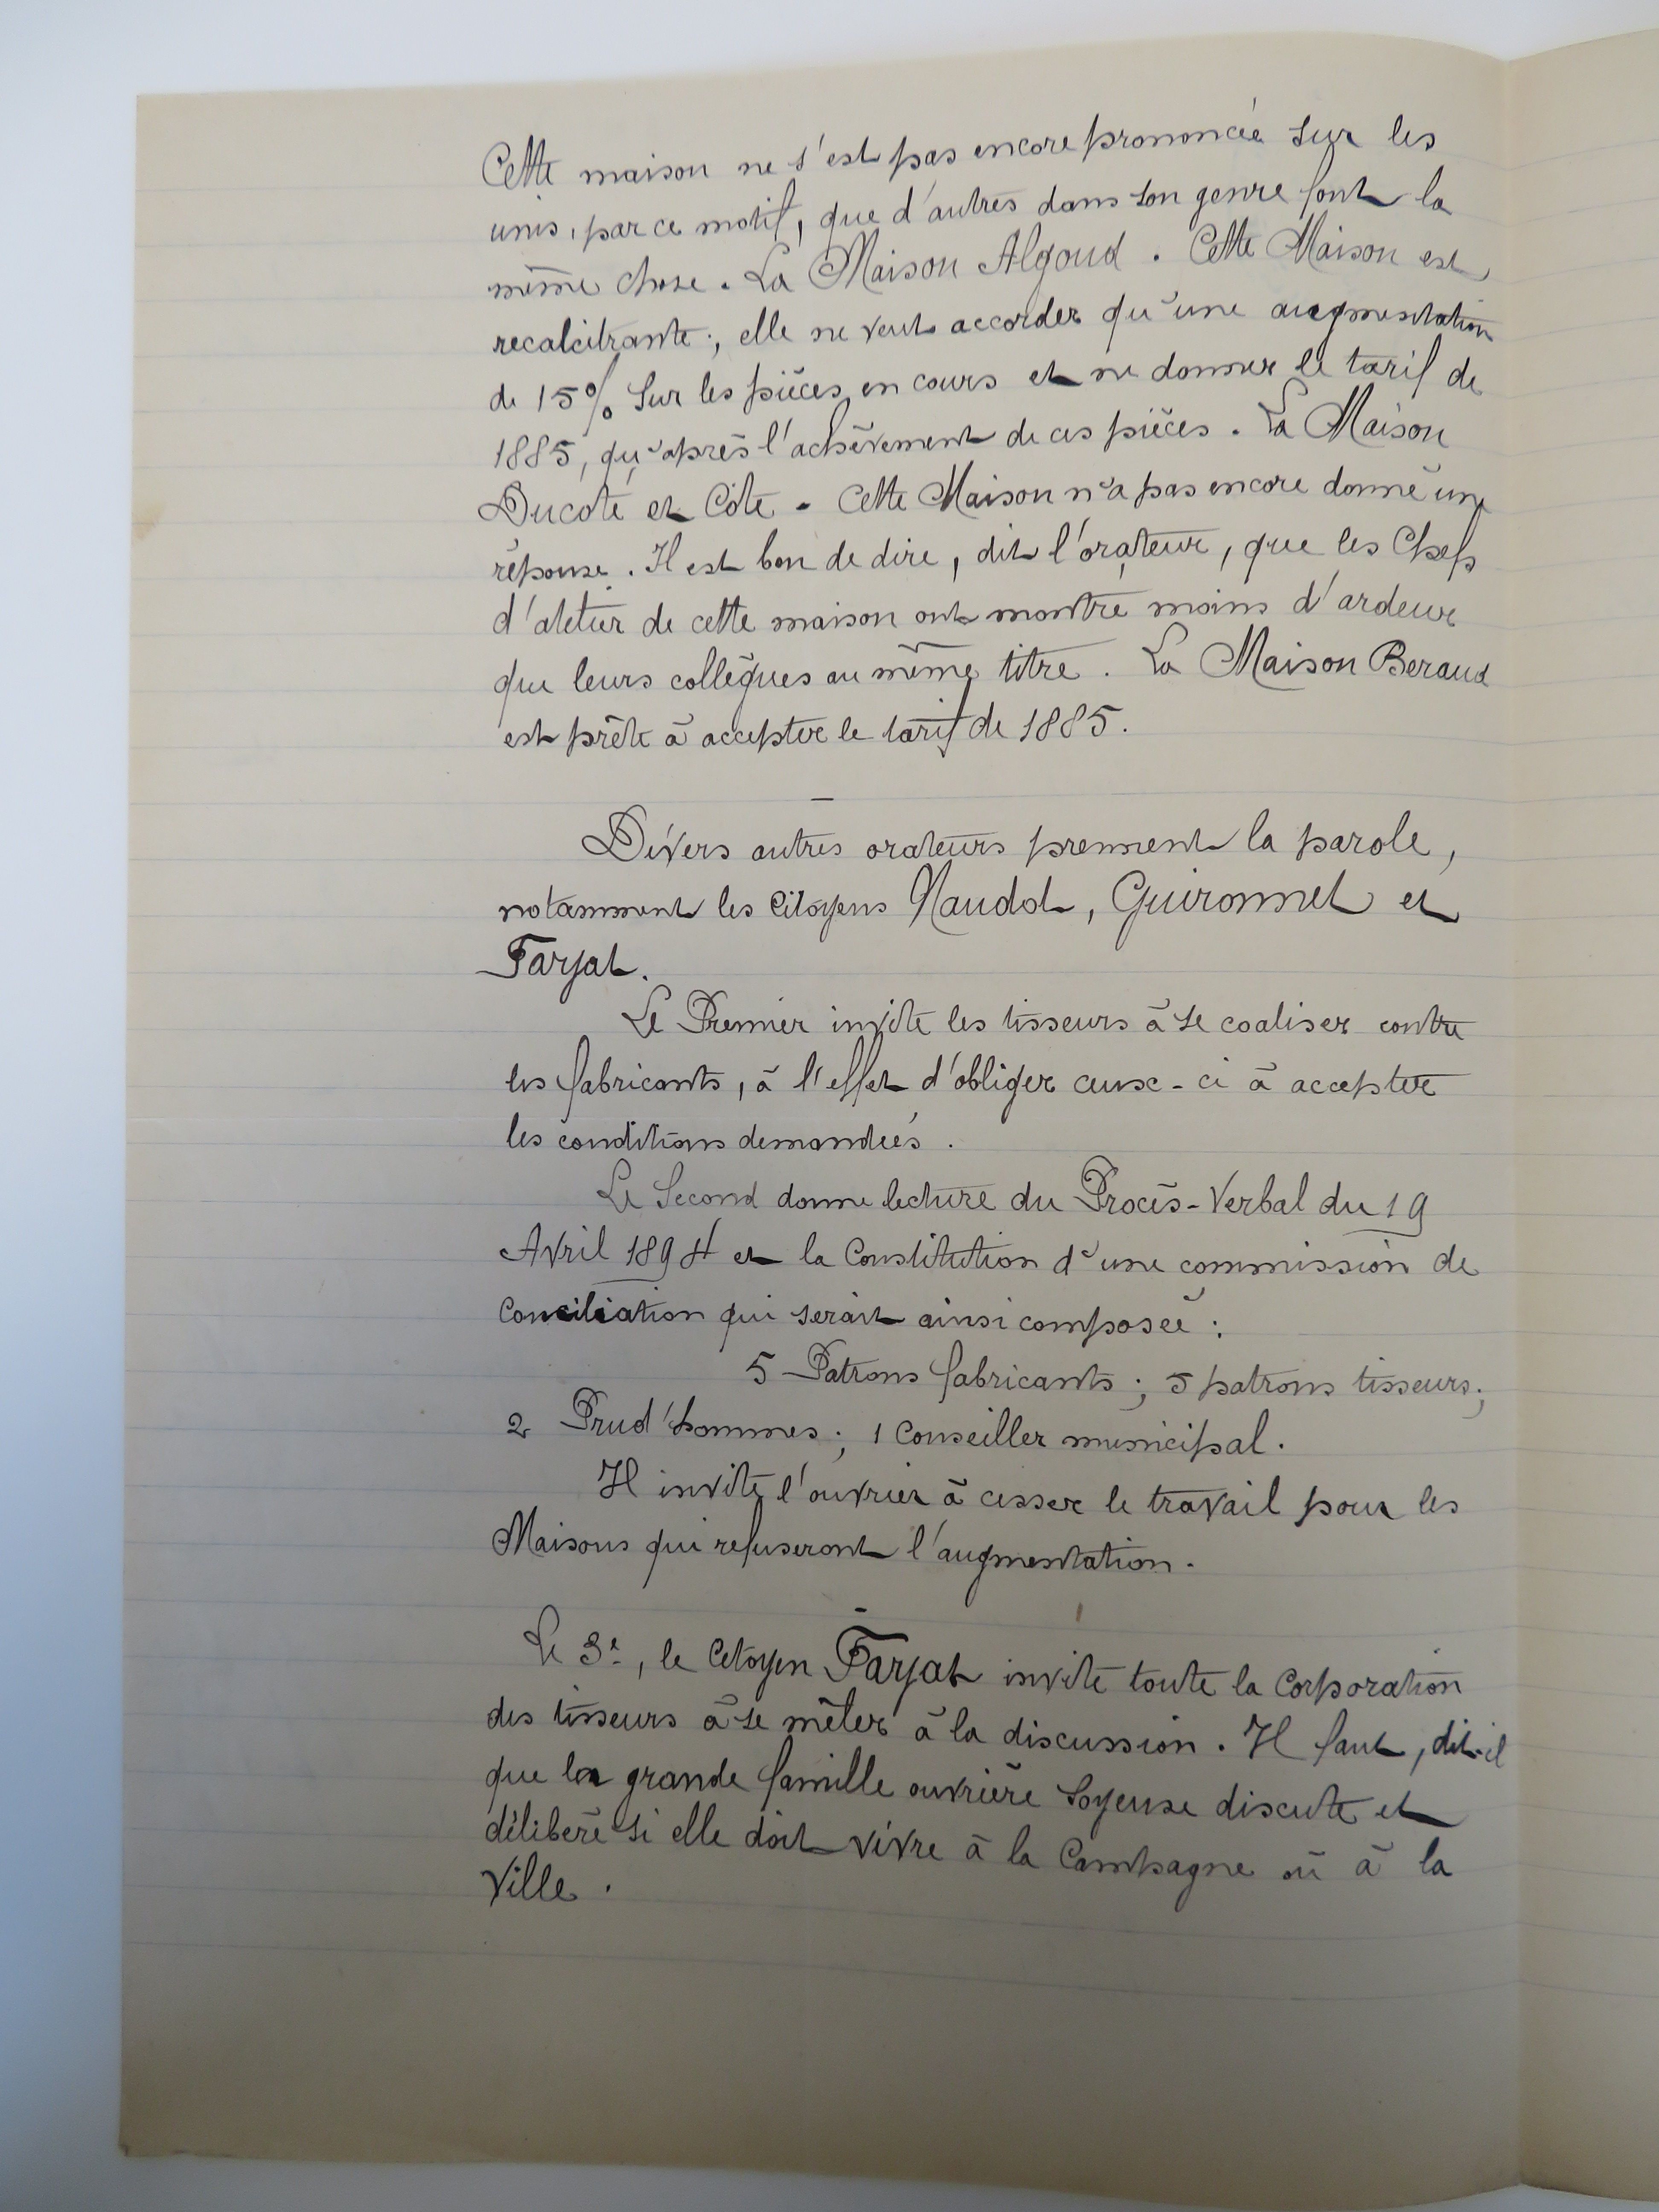 Cette maison ne s'est pas encore prononcée sur les
unis, par ce motif, que d'autres dans son genre font la
même chose. La Maison Algoud. Cette Maison est
recalcitrante; elle ne veut accorder qu'une augmentation
de 15% sur les pièces en cours et ne donner le tarif de
1885, qu'après l'achèvement de ces pièces. La Maison
Ducoté et Côte. Cette Maison n'a pas encore donné une
réponse. Il est bon de dire, dit l'orateur, que les Chefs
d'atelier de cette maison ont montré moins d'ardeur
que leurs collègues au même titre. La Maison Beraud
est prête à accepter le tarif de 1885.
Divers autres orateurs prennent la parole,
notamment les Citoyens Naudot, Guironnet et
Farjat.
Le Premier invite les tisseurs à se coaliser contre
les fabricants, à l'effet d'obliger ceux-ci à accepter
les conditions demandées.
Le Second donne lecture du Procès-Verbal du 19
Avril 1894 et la Constitution d'une commission de
Conciliation qui serait ainsi composée:
5 Patrons fabricants; 5 patrons tisseurs;
2 Prud'hommes; 1 Conseiller municipal.
Il invite l'ouvrier à cesser le travail pour les
Maisons qui refuseront l'augmentation.
Le 3e, le Citoyen Farjat invite toute la Corporation
des tisseurs à se mêler à la discussion. Il faut, dit-il
que la grande famille ouvrière soyeuse discute et
délibère si elle doit vivre à la Campagne où à la
Ville.